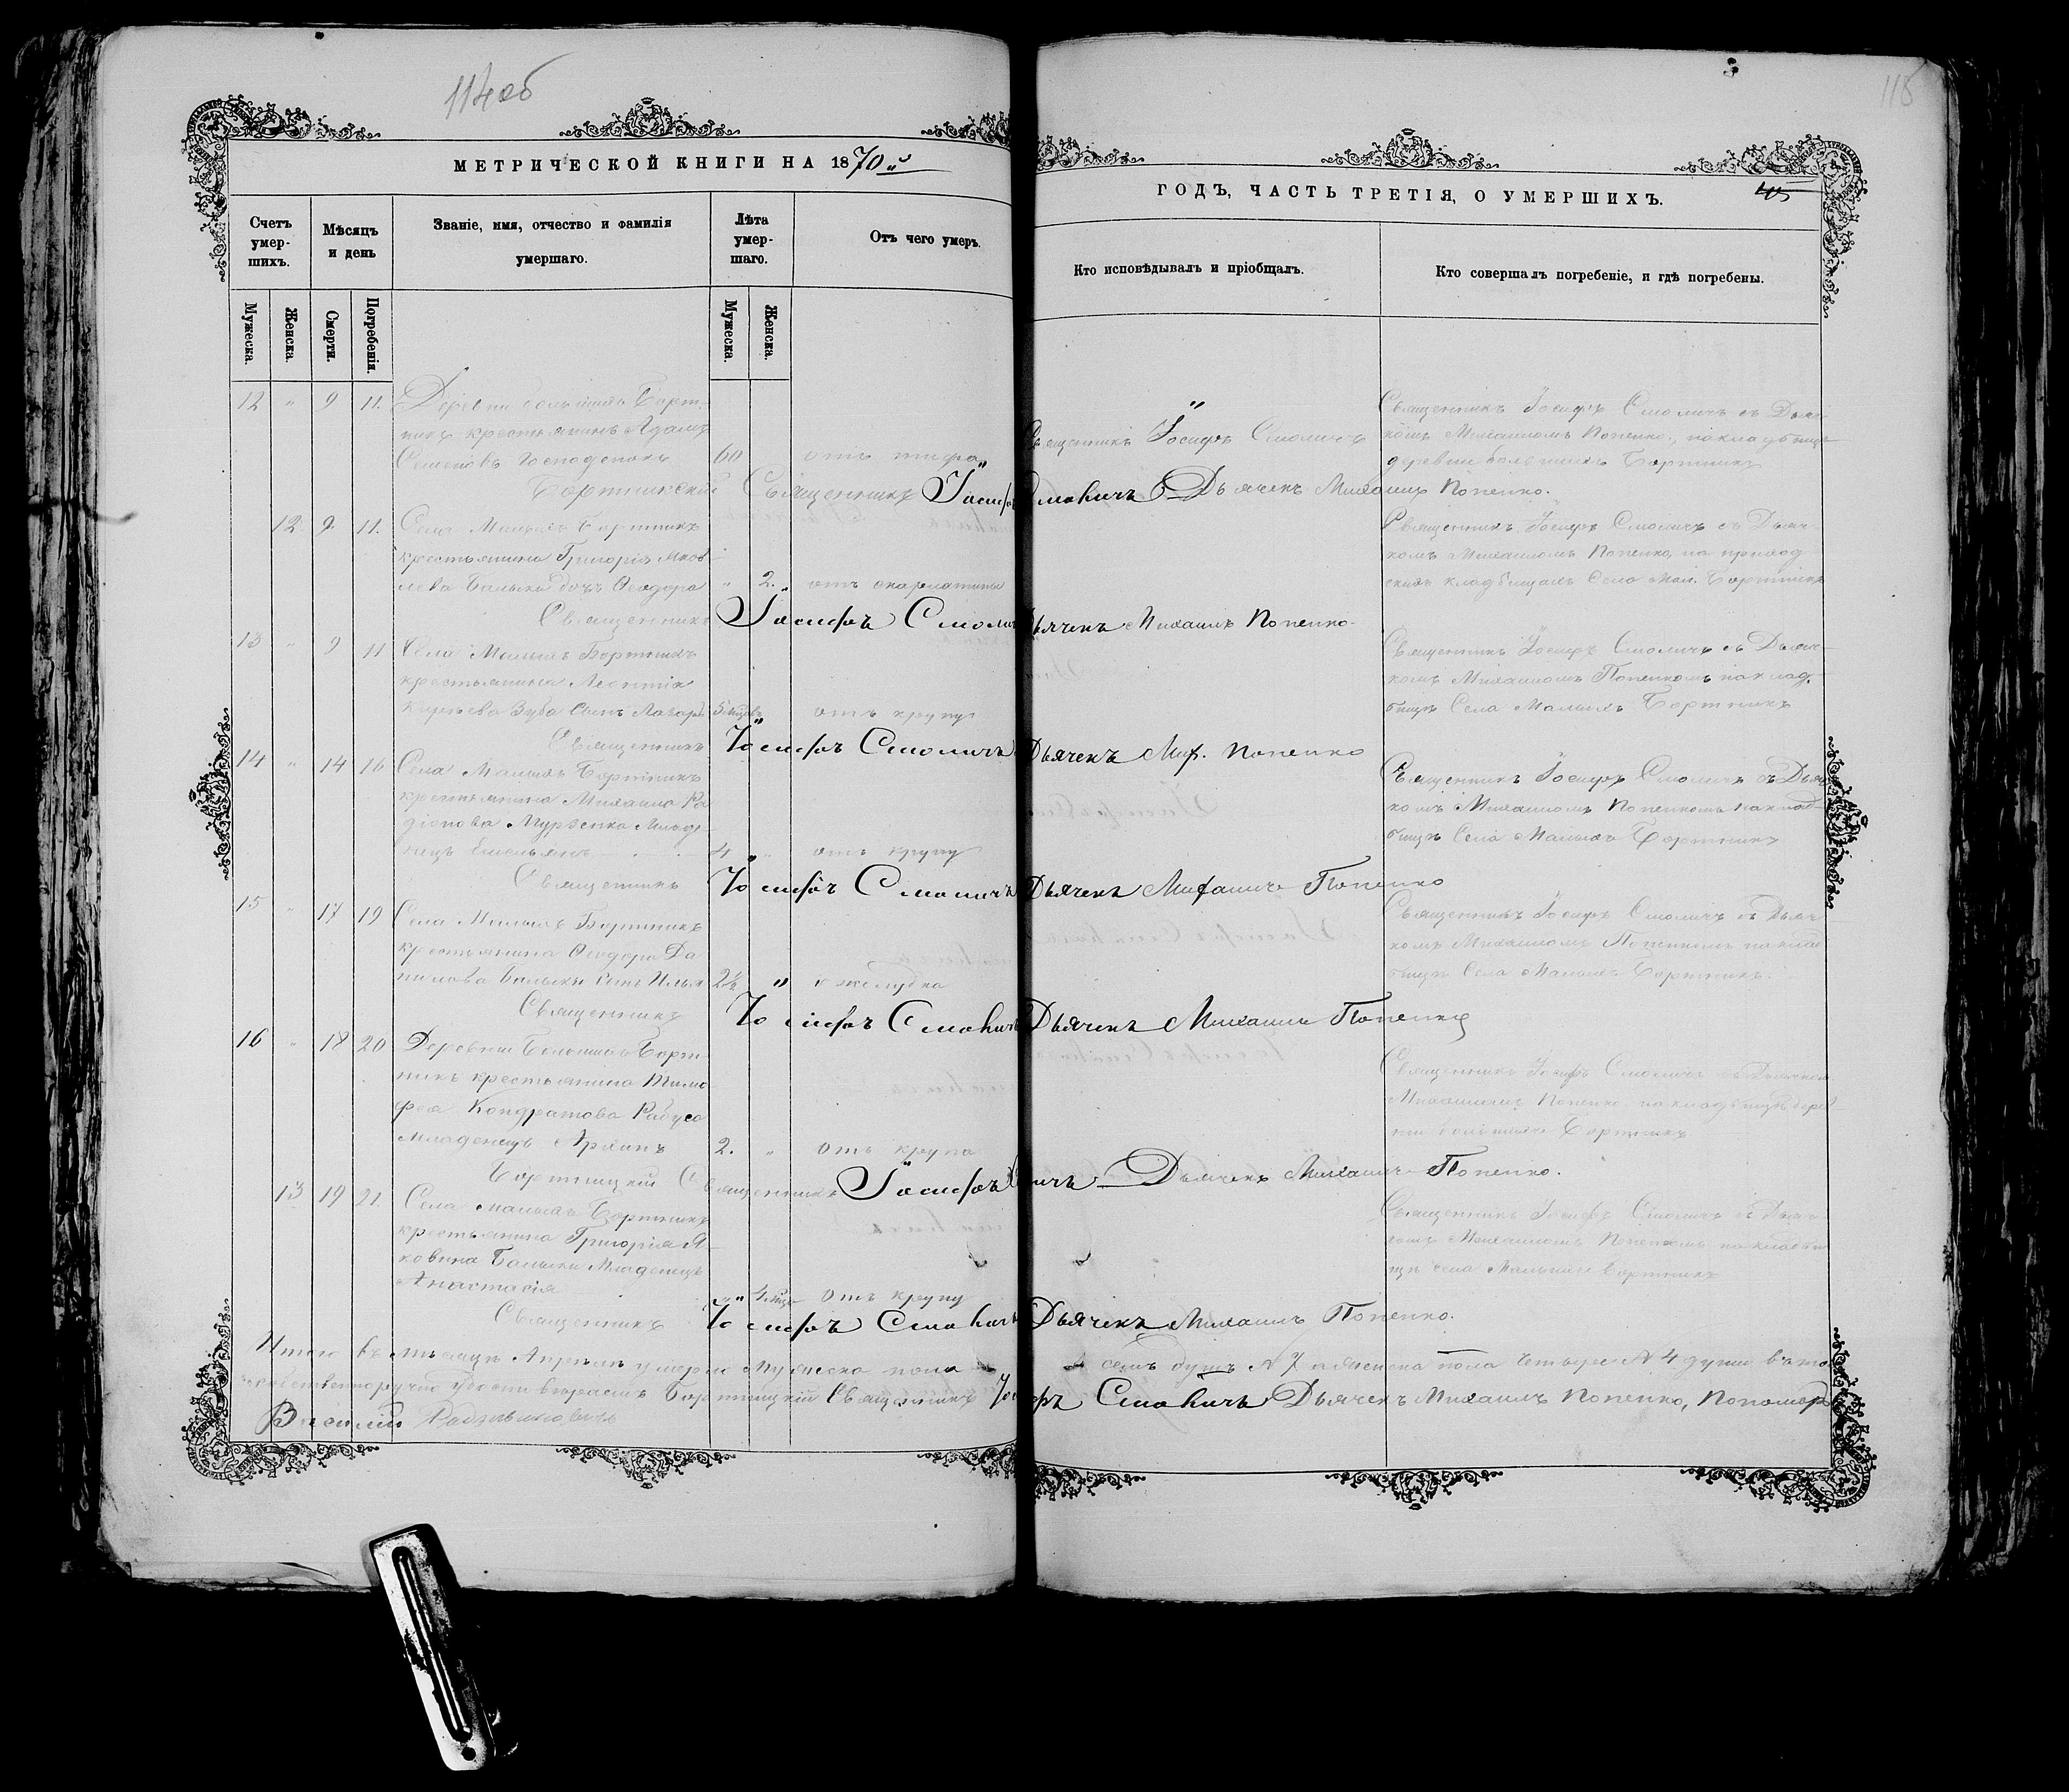 114 об
115
МЕТРИЧЕСКОЙ КНИГИ НА 1870й
ГОДЪ, ЧАСТЬ ТРЕТІЯ, О УМЕРШИХЪ.
Счетъ умер-шихъ.
Мѣсяцъ и день
Званіе, имя, отчество и фамилія умершаго.
Лѣта умер-шаго.
Отъ чего умеръ.
Кто исповѣдывалъ и пріобщалъ.
Кто совершалъ погребеніе, и гдѣ погребены.
Мужеска.
Женска.
Смерти.
Погребенія.
Мужеска.
Женска.
12 " 9 11. Деревни большихъ Борт-
никъ крестьянинъ Адамъ
Семеновъ 60 отъ тифа
Священникъ Іосифъ Смоличъ
Священникъ Іосифъ Смоличъ съ Дьяч-
комъ Михаиломъ Попенко, на кладбище
деревни большихъ Бортникъ
Бортникскій Священникъ Іосифъ Смоличъ Дьячекъ Михаилъ Попенко.
12 9 11. Села Малыхъ Бортникъ
крестьянина Григорія Яков-
лева Балыки дочь Феодора " 2. отъ скарлатины
Священникъ Іосифъ Смоличъ съ Дьяч-
комъ Михаиломъ Попенко, на приход
скихъ кладбищахъ Села Мал. Бортникъ
Священникъ Іосифъ Смоличъ Дьячекъ Михаилъ Попенко.
13 " 9 11 Села Малыхъ Бортникъ
крестьянина Леонтія
Зуба Сынъ Лазарь отъ крупу
Священникъ Іосифъ Смоличъ съ Дьяч-
комъ Михаиломъ Попенкомъ на клад-
бищѣ Села Малыхъ Бортникъ
Священникъ Іосифъ Смоличъ Дьячекъ Мих. Попенко
14 " 14 16 Села Малыхъ Бортникъ
крестьянина Михаила Ра
діонова Мурзенка Млад-
нецъ Емельянъ 4 " отъ крупу
Священникъ Іосифъ Смоличъ съ Дьяч
комъ Михаиломъ Попенкомъ на клад
бищѣ Села Малыхъ Бортникъ
Священникъ Іосифъ Смоличъ Дьячекъ Михаилъ Попенко
15 " 17 19 Села Малыхъ Бортникъ
крестьянина Феодора Да
нилова Балыки Сынъ Илья 2½ " желудка
Священникъ Іосифъ Смоличъ съ Дьяч-
комъ Михаиломъ Попенкомъ на клад
бищѣ Села Малыхъ Бортникъ.
Священникъ Іосифъ Смоличъ Дьячекъ Михаилъ Попенко
16 " 18 20 Деревни Большихъ Борт-
никъ крестьянина Тимо
фея Кондратова Рабуса
младенецъ 2. " отъ крупа
Священникъ Іосифъ Смоличъ съ Дьячкомъ
Михаиломъ Попенко на кладбищѣ дерев-
ни большихъ Бортникъ
Бортницкій Священникъ Іосифъ Смоличъ Дьячекъ Михаилъ Попенко.
13 19 21. Села малыхъ Бортникъ
крестьянина Григорія Я-
ковина Балыки Младенецъ
Анастасія отъ крупу
Священникъ Іосифъ Смоличъ съ Дьяч-
комъ Михаиломъ Попенкомъ на кладби
щѣ села Малыхъ Бортникъ
Священникъ Іосифъ Смоличъ Дьячекъ Михаилъ Попенко.
Итого въ мѣсяцѣ Апрѣлѣ умерло Мужеска пола семь душъ N 7 а женска пола четыре N 4 души
Бортницкій Священникъ Іосифъ Смоличъ Дьячекъ Михаилъ Попенко, Пономарь
Василій